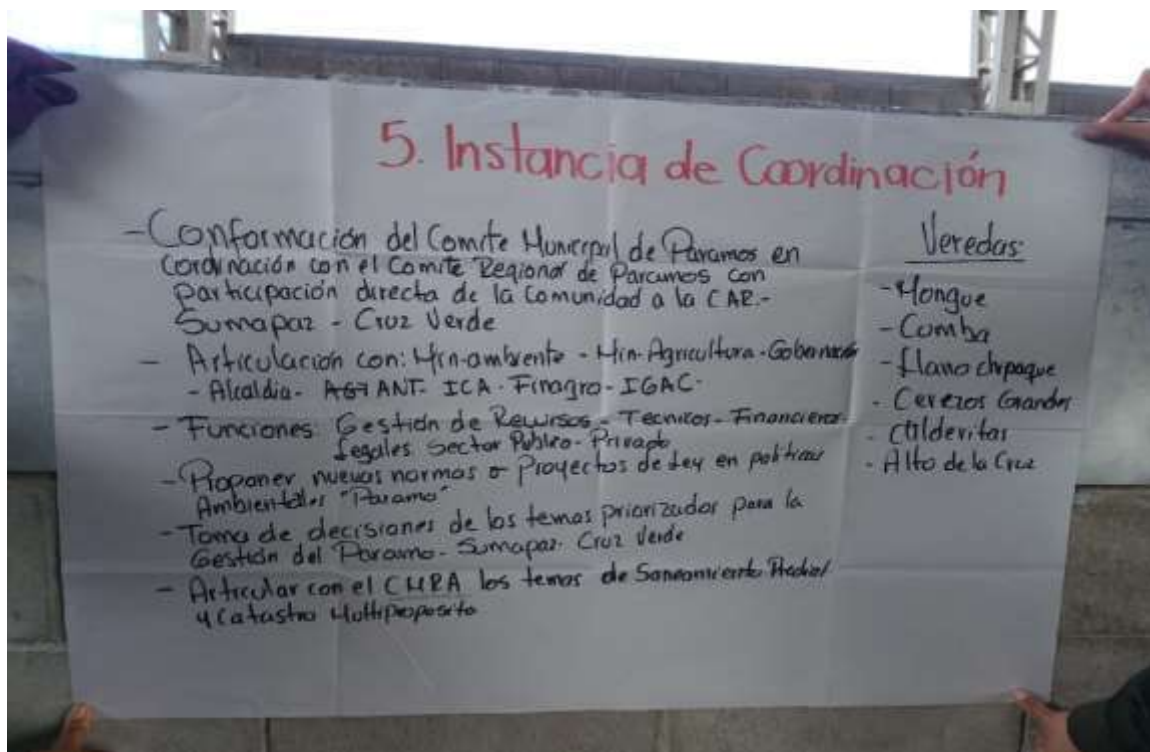 5. Instancia de Coordinación
- Conformación del Comite Municipal de Paramos en
Cordinación con el Comite Regional de Paramos con
participación directa de la comunidad a la CAR.-
Sumapaz - Cruz Verde
- Articulación con: Min-ambiente - Min-Agricultura - Gobernación
- Alcaldia - ANT - ICA - Finagro - IGAC -
- Funciones: Gestión de Recursos - Tecnicos - Financieros
Legales Sector Publico - Privado
- Proponer nuevas normas o Proyectos de Ley en politicas
Ambientales "Paramo"
- Toma de decisiones de los temas priorizados para la
Gestión del Paramo - Sumapaz - Cruz Verde
- Articular con el CMRA los temas de Saneamiento Predial
y Catastro Multiproposito
Veredas
- Mongue
- Cumba
- Llano chipaque
- Cerezos Grandes
- Calderitas
- Alto de la Cruz